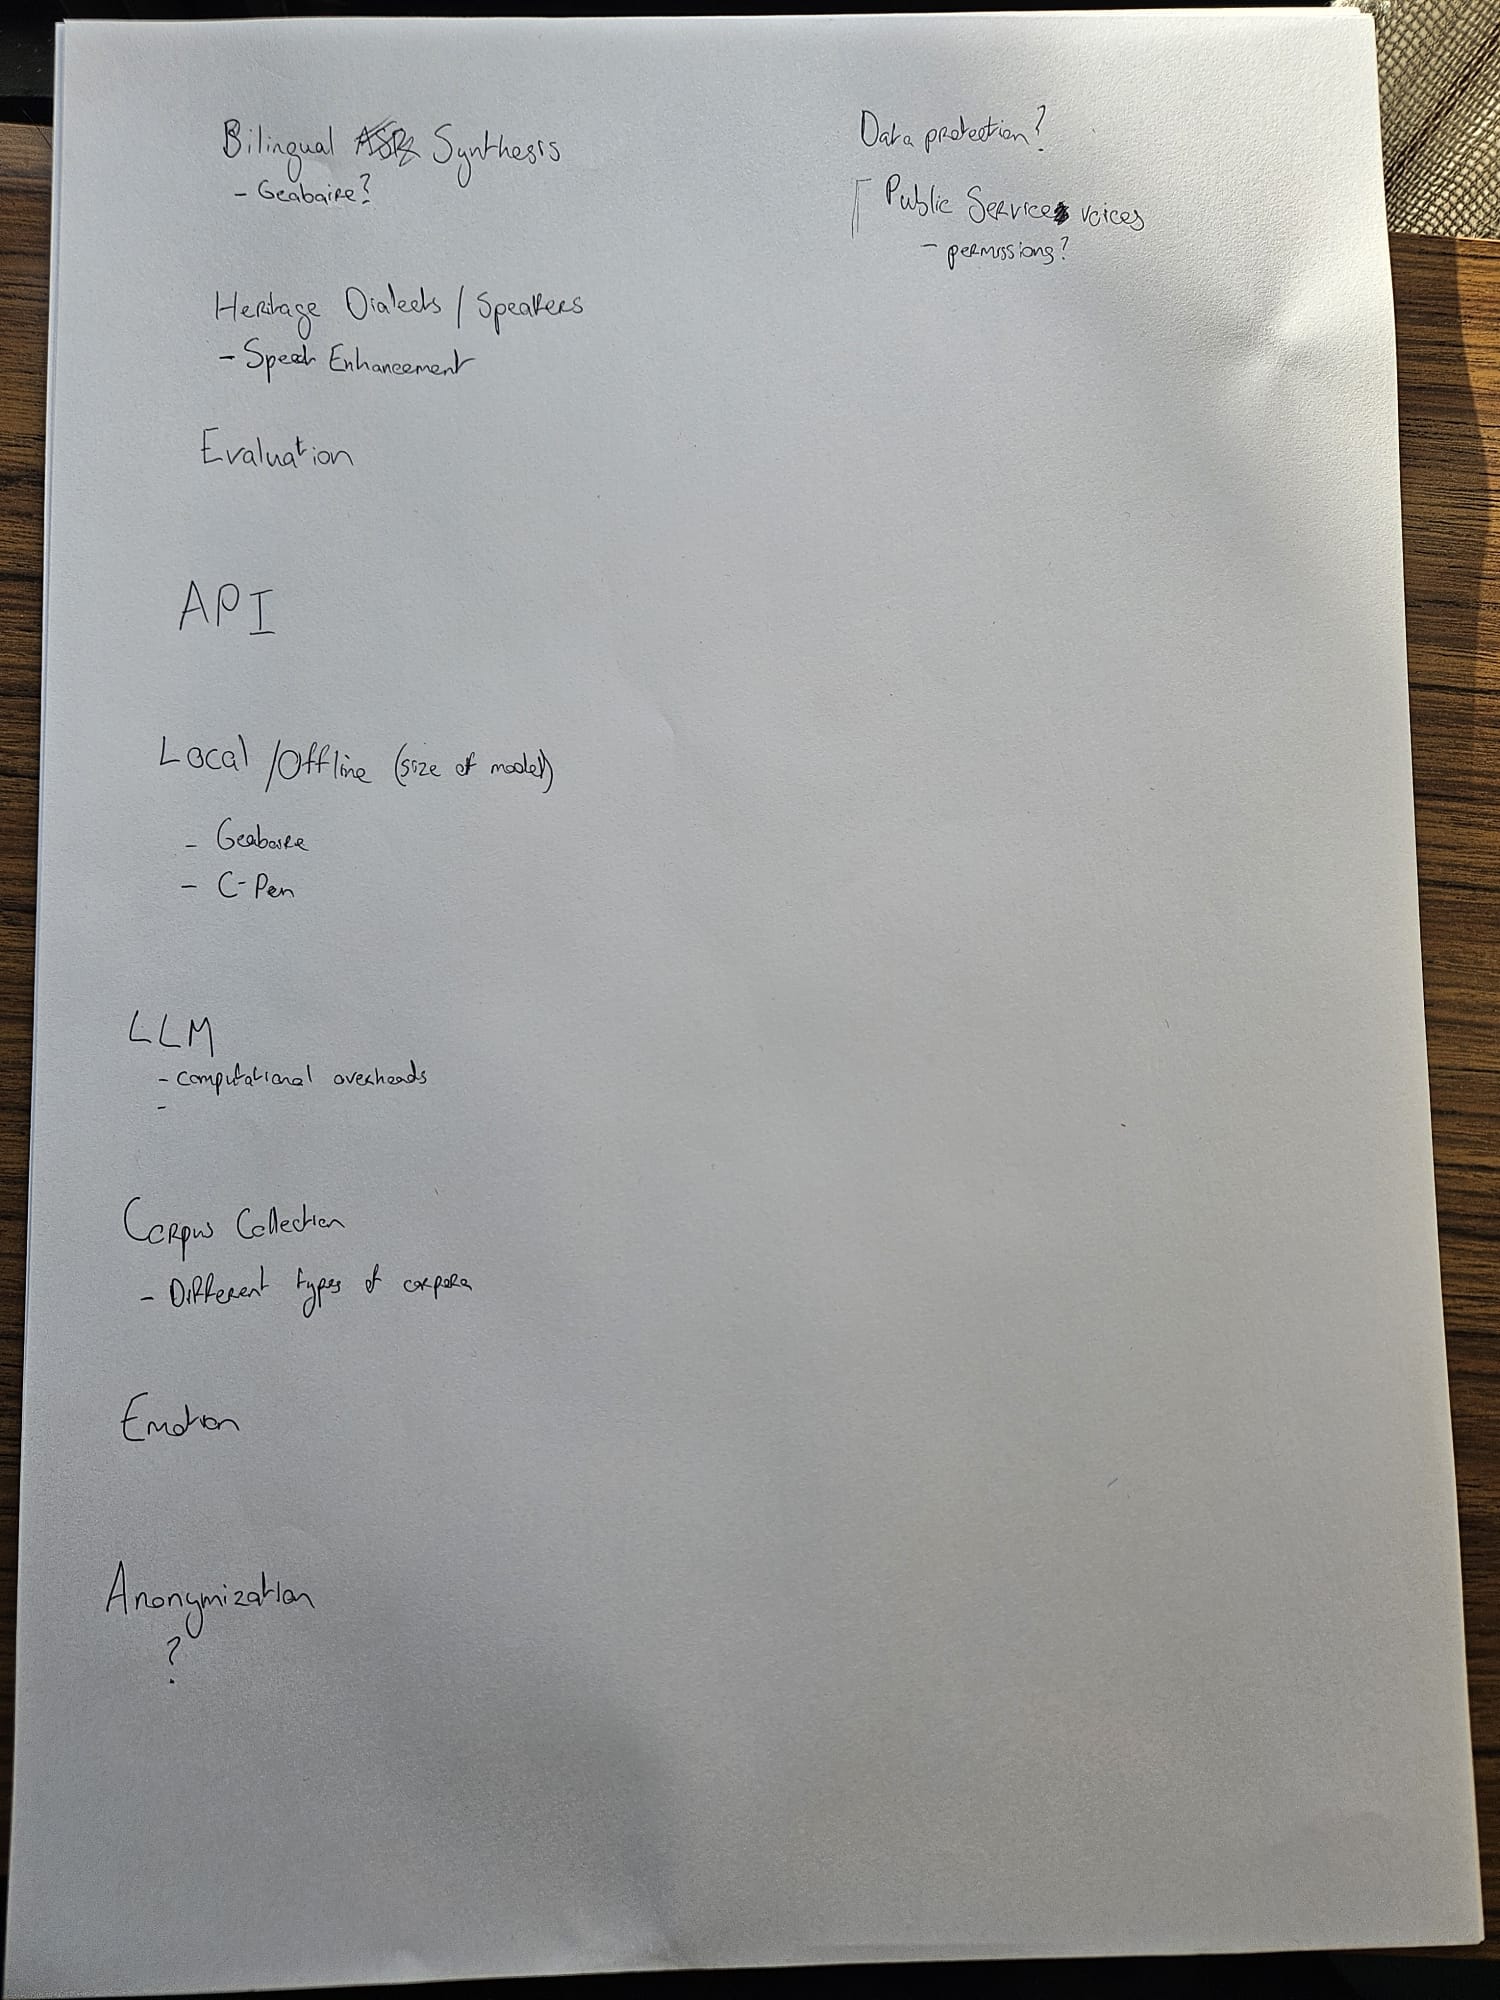 Bilingual Synthesis
- Geabaire?
Heritage Dialects / Speakers
- Speech Enhancement
Evaluation
API
Local / Offline (size of model)
- Geabaire
- C-Pen
LLM
- computational overheads
-
Corpus Collection
- Different types of corpora
Emotion
Anonymization
?
Data protection?
Public Service voices
- permissions?